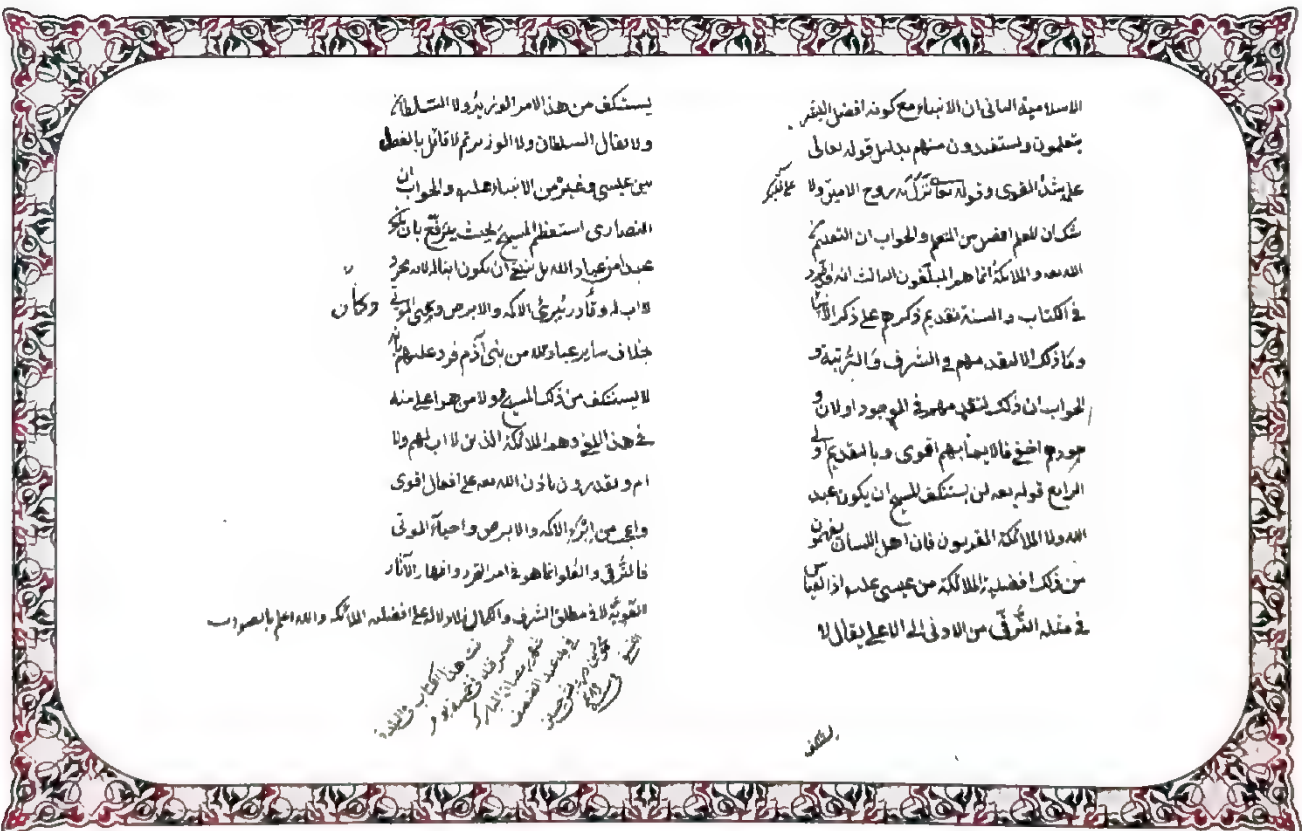 الاسلامية الثانى ان الانبياء مع كونه افضل البشر
يتعلمون ويستفيدون منهم بدليل قوله تعالى
علمه شديد القوى وقوله تعالى نزل به روح الامين ولا
شك ان المعلم افضل من المتعلم والجواب ان التعليم من
الله تعه والملائكة انما هم المبلغون الثالث انه اطرد
فى الكتاب والسنة تقديم ذكرهم على ذكر الانبياء
وما ذلك الا لتقدمهم فى الشرف والرتبة و
الجواب ان ذلك لتقدمهم فى الوجود او لان و
جودهم اخفى فالايمان بهم اقوى وبالتقديم اولى
الرابع قوله تعه لن يستنكف المسيح ان يكون عبد
الله ولا الملائكة المقربون فان اهل اللسان يفهمون
من ذلك افضلية الملائكة من عيسى عليه اذ القياس
فى مثله الترقى من الادنى الى الاعلى يقال لا
يستنكف
يستنكف من هذا الامر الوزير ولا السلطان
ولا يقال السلطان ولا الوزير ثم لا قائل بالفصل
بين عيسى وغيره من الانبياء والجواب ان
النصارى استعظم المسيح بحيث يترفع بان يكون
عبدا من عباد الله بل ينبغى ان يكون ابنا له لانه مجرد
لا اب له وكان
وقادر يبرئ الاكمه والابرص ويحيى الموتى
بخلاف ساير عباد الله من بنى آدم فرد عليهم بانه
لا يستنكف من ذلك المسيح ولا من هو اعلى منه
فى هذا المعنى وهم الملائكة الذين لا اب لهم ولا
ام ويقدرون باذن الله تعه على افعال اقوى
واعجب من ابراء الاكمه والابرص واحياء الموتى
فالترقى والعلو انما هو فى امر التجرد واظهار الآثار
القوية لا فى مطلق الشرف والكمال فلا دلالة على افضلية الملائكة والله اعلم بالصواب
تمت هذا الكتاب فى البلدة
فى
شهر رمضان المبارك